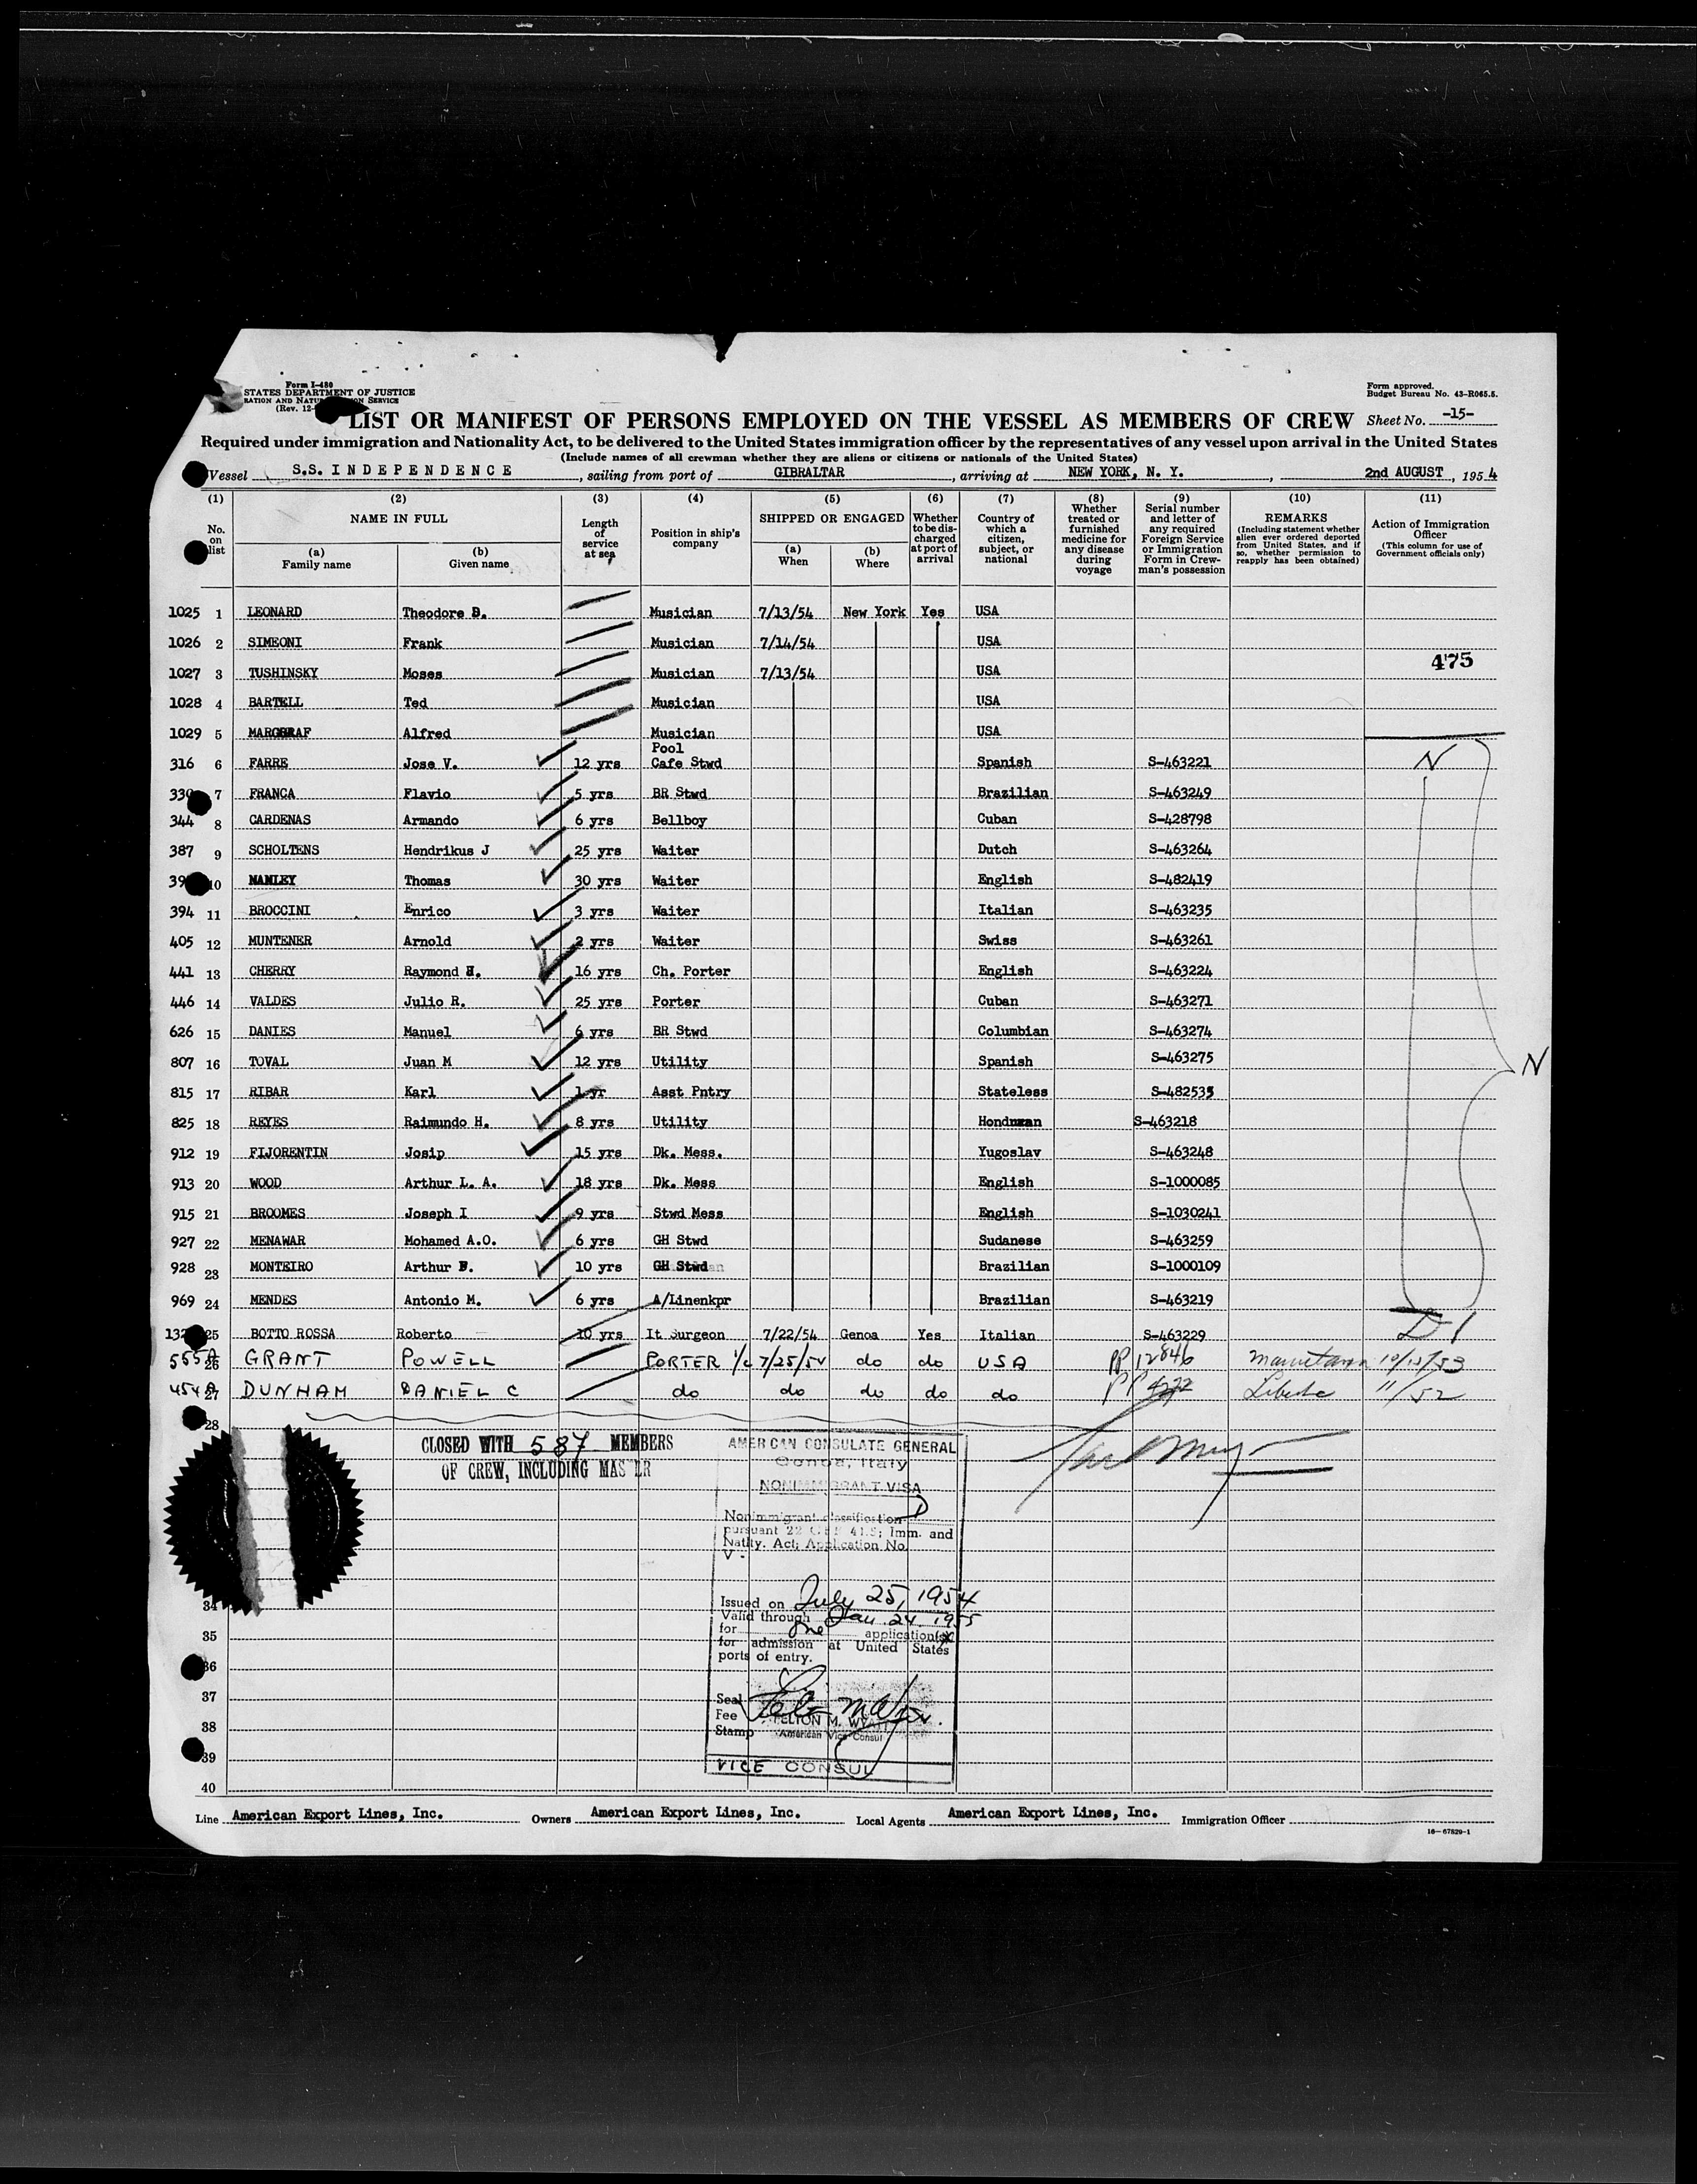 Form I-480
STATES DEPARTMENT OF JUSTICE
RATION AND NATU ON SERVICE
(Rev. 12-
Form approved.
Budget Bureau No. 43-R065.5.
LIST OR MANIFEST OF PERSONS EMPLOYED ON THE VESSEL AS MEMBERS OF CREW Sheet No. -15-
Required under immigration and Nationality Act, to be delivered to the United States immigration officer by the representatives of any vessel upon arrival in the United States
(Include names of all crewman whether they are aliens or citizens or nationals of the United States)
Vessel S.S. INDEPENDENCE, sailing from port of GIBRALTAR, arriving at NEW YORK, N. Y., 2nd AUGUST, 1954
(1) (2) (3) (4) (5) (6) (7) (8) (9) (10) (11)
No. on list
NAME IN FULL
(a) Family name
(b) Given name
Length of service at sea
Position in ship's company
SHIPPED OR ENGAGED
(a) When
(b) Where
Whether to be discharged at port of arrival
Country of which a citizen, subject, or national
Whether treated or furnished medicine for any disease during voyage
Serial number and letter of any required Foreign Service or Immigration Form in Crewman's possession
REMARKS
(Including statement whether alien ever ordered deported from United States, and if so, whether permission to reapply has been obtained)
Action of Immigration Officer
(This column for use of Government officials only)
1025 1 LEONARD Theodore B. Musician 7/13/54 New York Yes USA
1026 2 SIMEONI Frank Musician 7/14/54 USA
475
1027 3 TUSHINSKY Moses Musician 7/13/54 USA
1028 4 BARTELL Ted Musician USA
1029 5 MARGGRAF Alfred Musician USA
316 6 FARRE Jose V. 12 yrs Pool Cafe Stwd Spanish S-463221 N
330 7 FRANCA Flavio 5 yrs BR Stwd Brazilian S-463249
344 8 CARDENAS Armando 6 yrs Bellboy Cuban S-428798
387 9 SCHOLTENS Hendrikus J 25 yrs Waiter Dutch S-463264
39 10 MANLEY Thomas 30 yrs Waiter English S-482419
394 11 BROCCINI Enrico 3 yrs Waiter Italian S-463235
405 12 MUNTENER Arnold 2 yrs Waiter Swiss S-463261
441 13 CHERRY Raymond H. 16 yrs Ch. Porter English S-463224
446 14 VALDES Julio R. 25 yrs Porter Cuban S-463271
626 15 DANIES Manuel 6 yrs BR Stwd Columbian S-463274
807 16 TOVAL Juan M 12 yrs Utility Spanish S-463275 N
815 17 RIBAR Karl 1 yr Asst Pntry Stateless S-482535
825 18 REYES Raimundo H. 8 yrs Utility Honduran S-463218
912 19 FIJORENTIN Josip 15 yrs Dk. Mess. Yugoslav S-463248
913 20 WOOD Arthur L. A. 18 yrs Dk. Mess English S-1000085
915 21 BROOMES Joseph I 9 yrs Stwd Mess English S-1030241
927 22 MENAWAR Mohamed A.O. 6 yrs GH Stwd Sudanese S-463259
928 23 MONTEIRO Arthur F. 10 yrs GH Stwd Brazilian S-1000109
969 24 MENDES Antonio M. 6 yrs A/Linenkpr Brazilian S-463219
132 25 BOTTO ROSSA Roberto 10 yrs It Surgeon 7/22/54 Genoa Yes Italian S-463229 D-1
555A 26 GRANT POWELL PORTER 1/c 7/25/54 do do USA PP 12846 Mauretania 10/15/53
454A 27 DUNHAM DANIEL C do do do do do PP Liberte 11/52
28
CLOSED WITH 587 MEMBERS
OF CREW, INCLUDING MASTER
AMERICAN CONSULATE GENERAL
Genoa, Italy
NONIMMIGRANT VISA
Nonimmigrant classification D
pursuant 22 CFR 41.5; Imm. and
Natlty. Act; Application No.
V -
Issued on July 25, 1954
Valid through Jan 24, 1955
for one application(s)
for admission at United States
ports of entry.
Seal
Fee
Stamp
FELTON M. WYATT
American Vice Consul
VICE CONSUL
34
35
36
37
38
39
40
Line American Export Lines, Inc. Owners American Export Lines, Inc. Local Agents American Export Lines, Inc. Immigration Officer
16-67829-1